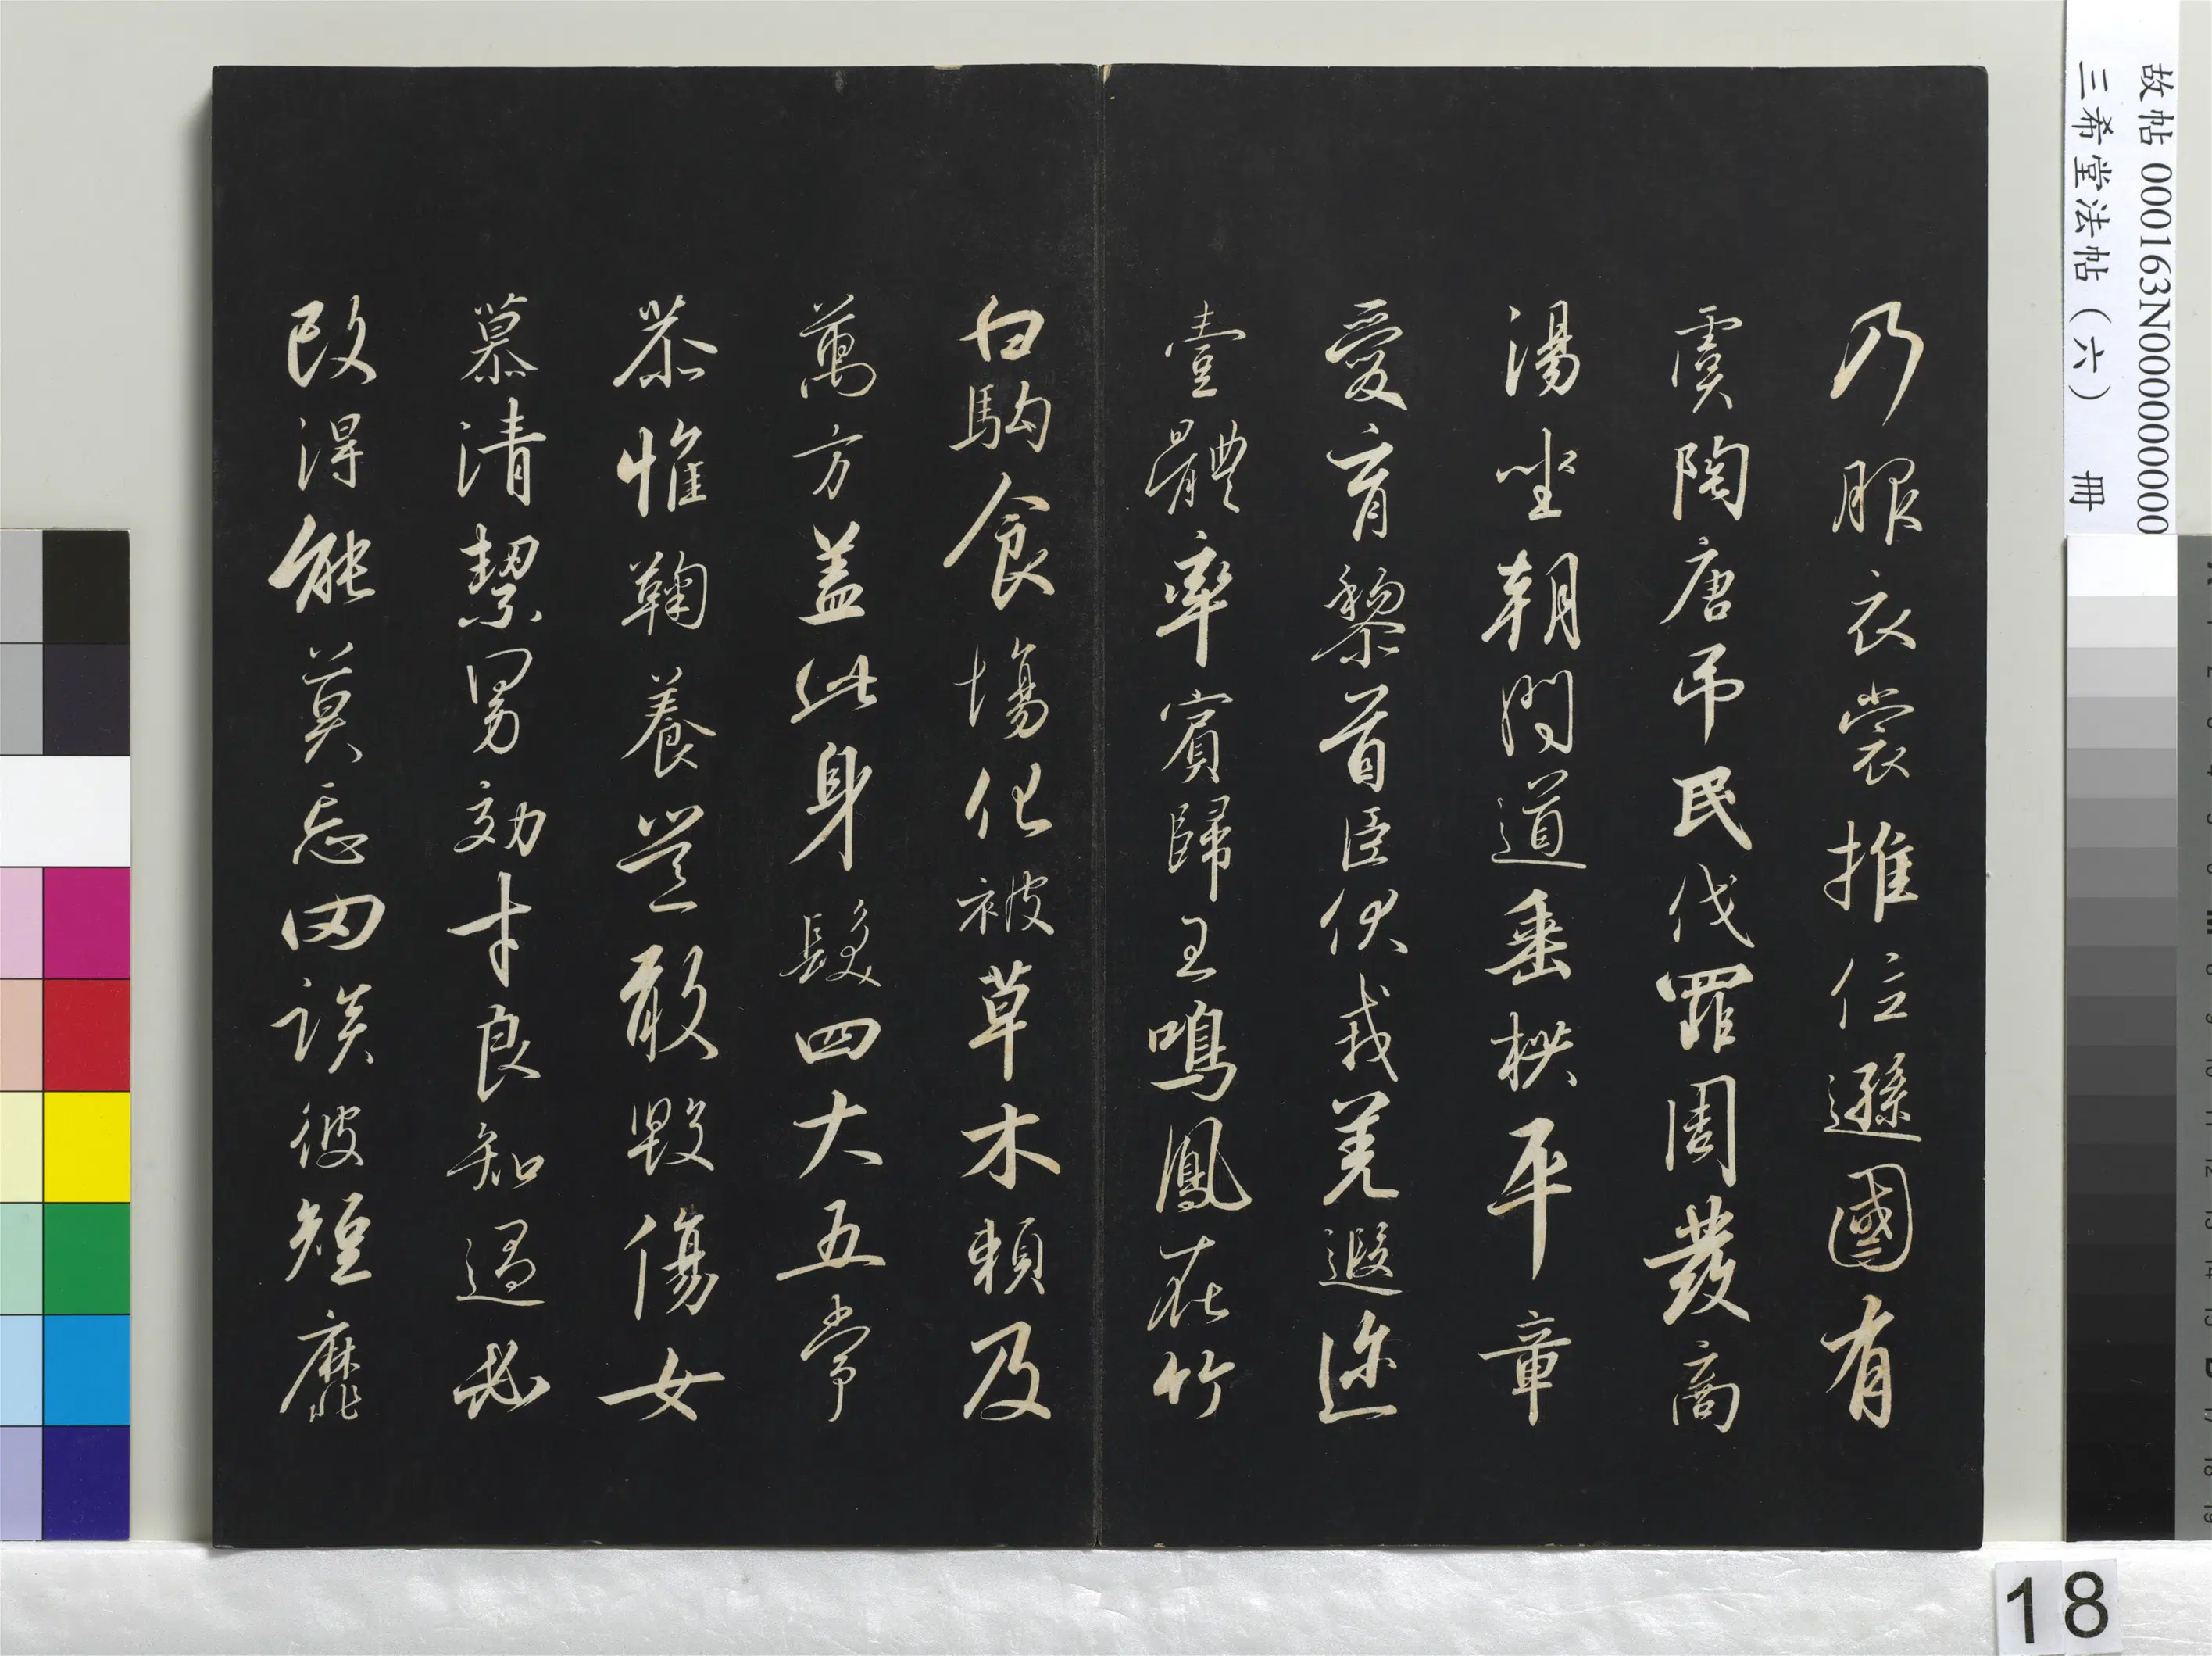 故帖 000163N000000000
三希堂法帖（六） 冊
乃服衣裳推位遜國有
虞陶唐弔民伐罪周發商
湯坐朝問道垂栱平章
愛育黎首臣伏戎羌遐迩
壹體率賓歸王鳴鳳在竹
白駒食場化被草木賴及
萬方蓋此身髮四大五常
恭惟鞠養豈敢毀傷女
慕清絜男効才良知過必
改得能莫忘罔談彼短靡
18